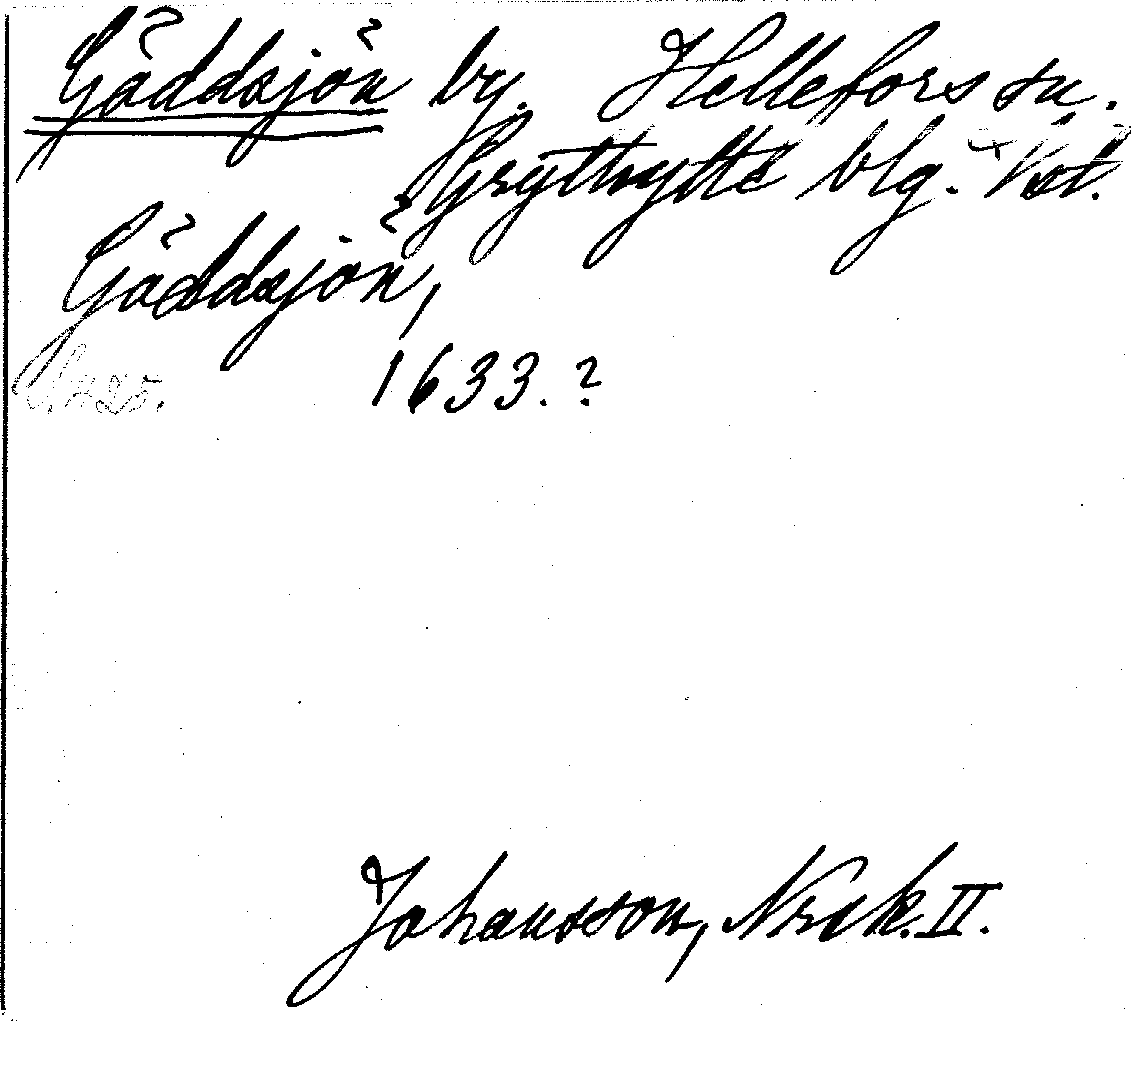 Gäddsjön by. Hellefors sn.
Grythytte blg. Vstl.
Gäddsjön,
1633.?
S. 425.
Johansson, Nrck. II.